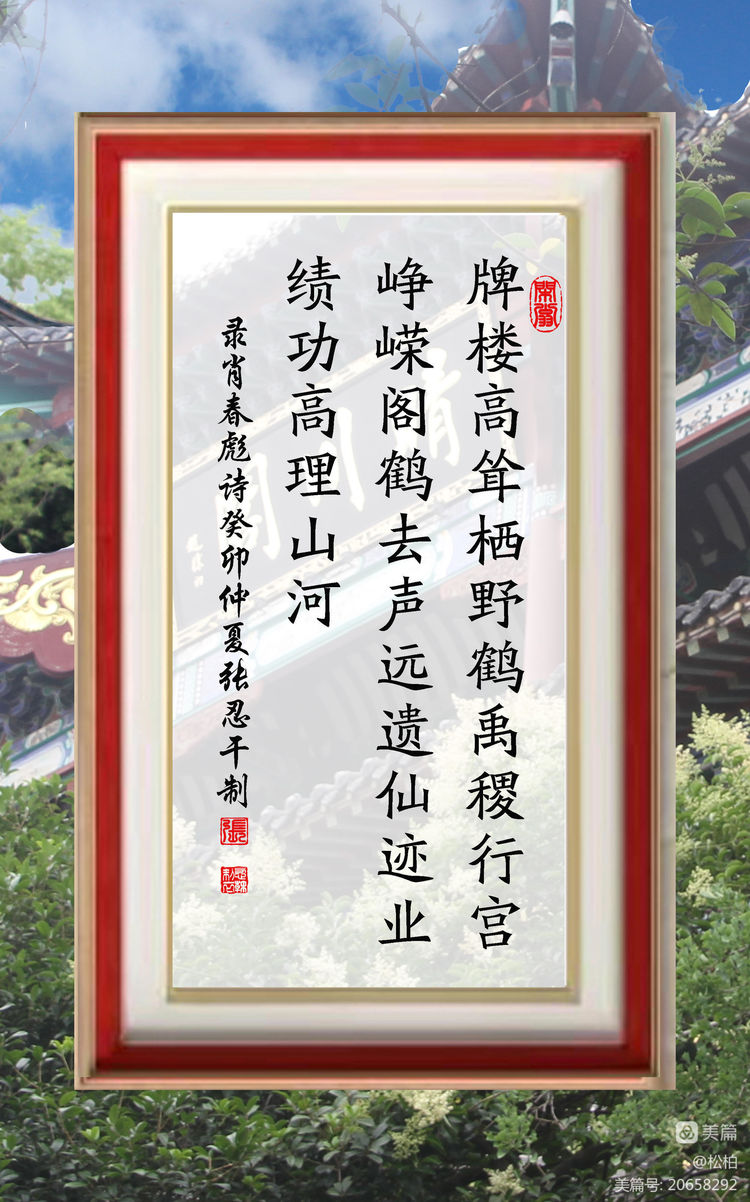 牌楼高耸栖野鹤禹稷行宫
峥嵘阁鹤去声远遗仙迹业
绩功高理山河
录肖春彪诗癸卯仲夏张忍干制
張
美篇
@松柏
美篇号: 20658292